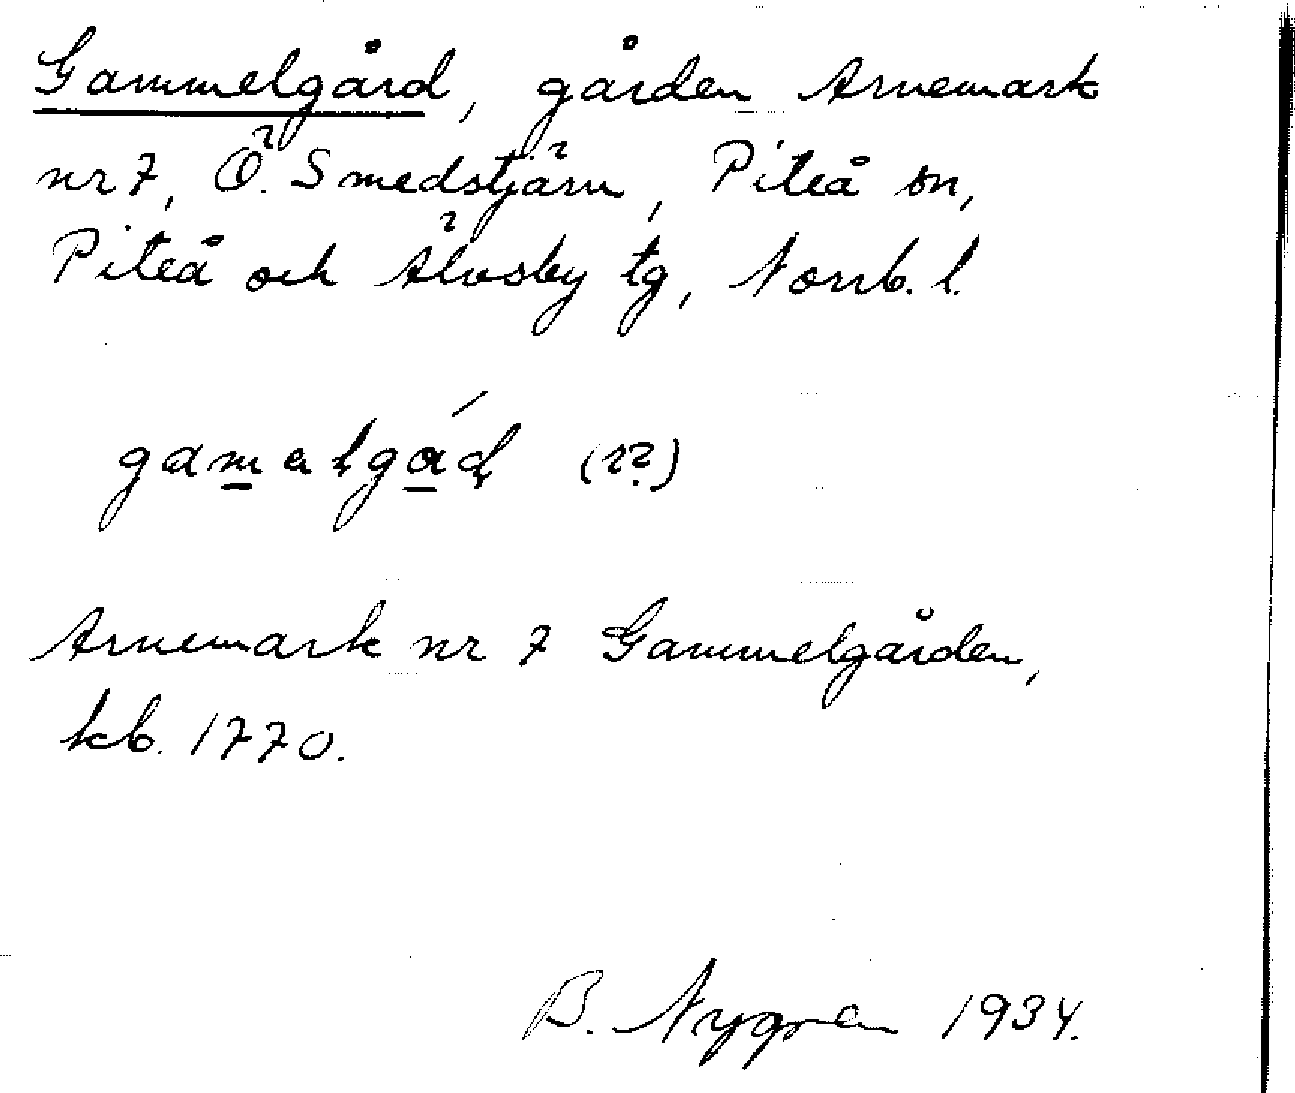 Gammelgård, gården Arnemark
nr 7, Ö. Smedstjärn, Piteå sn,
Piteå och Älvsby tg, Norrb. l.
gamalgáḍ (22)
Arnemark nr 7 Gammelgården,
kb. 1770.
B. Nygren 1934.